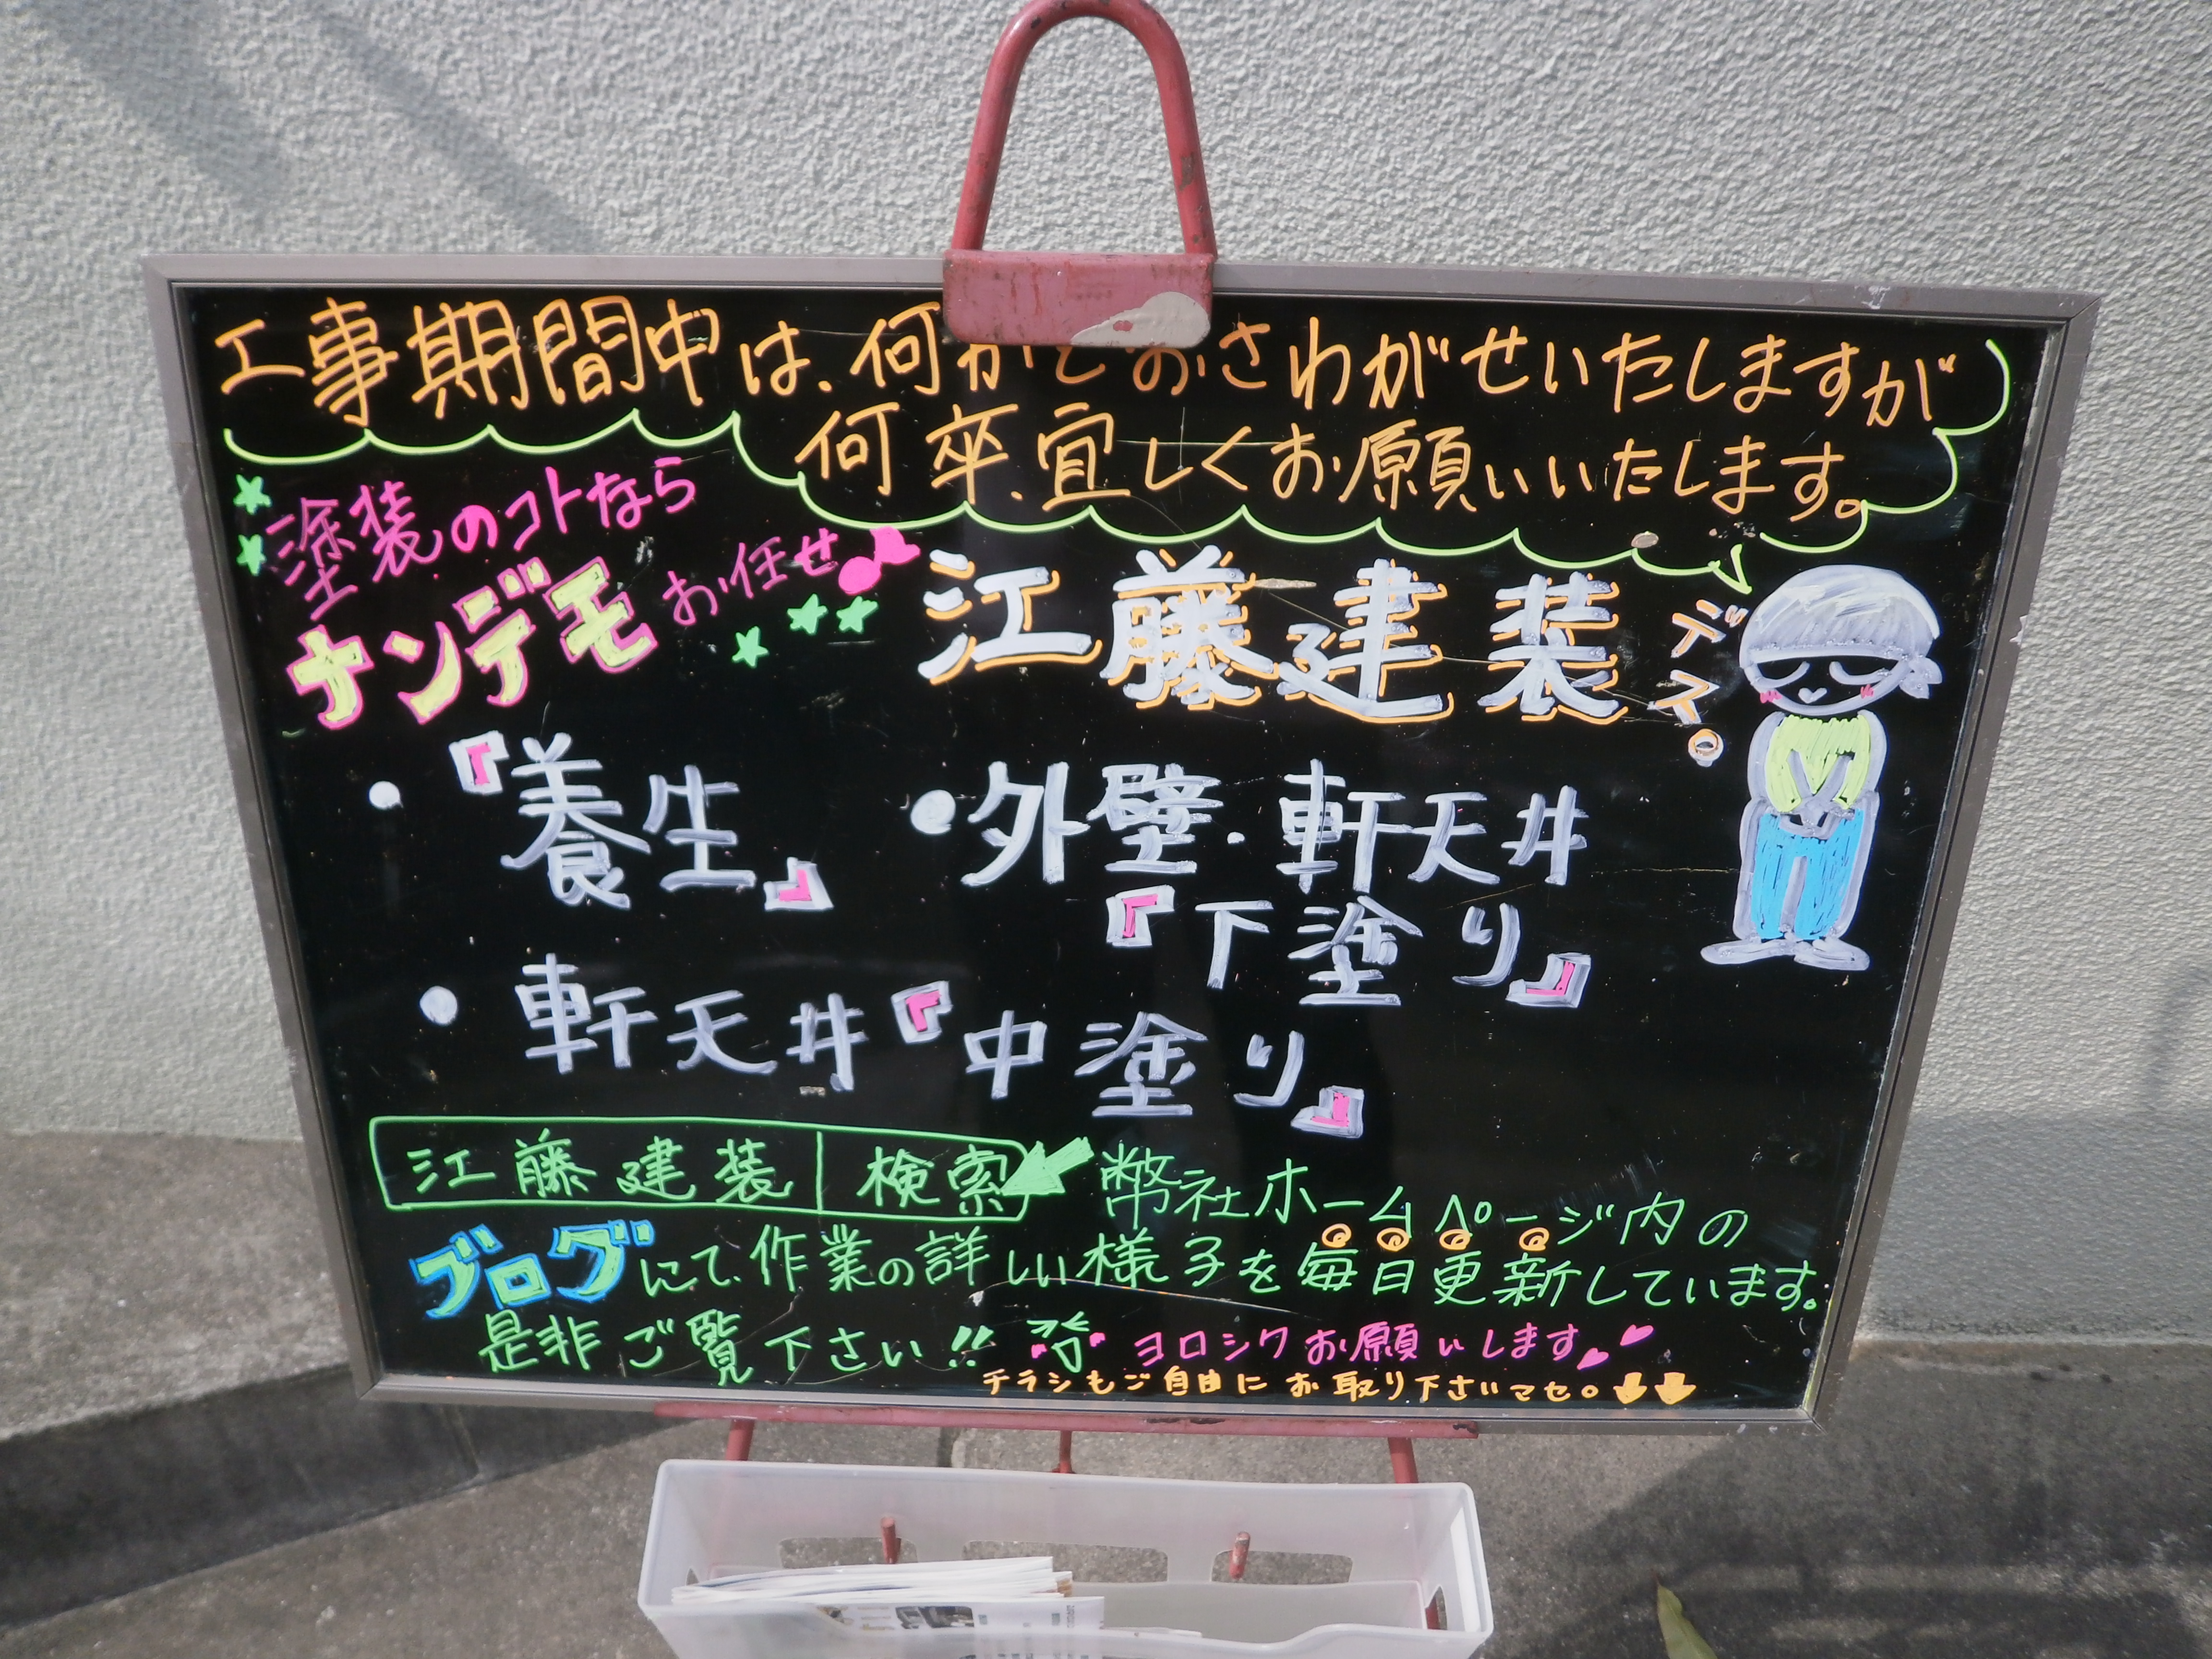 工事期間中は、何かとおさわがせいたしますが
何卒、宜しくお願いいたします。
塗装のコトなら
ナンデモお任せ
江藤建装デス。
・『養生』
・外壁・軒天井
『下塗り』
・軒天井『中塗り』
江藤建装 検索 弊社ホームページ内の
ブログにて、作業の詳しい様子を毎日更新しています。
是非ご覧下さい!! ヨロシクお願いします
チラシもご自由にお取り下さいマセ。